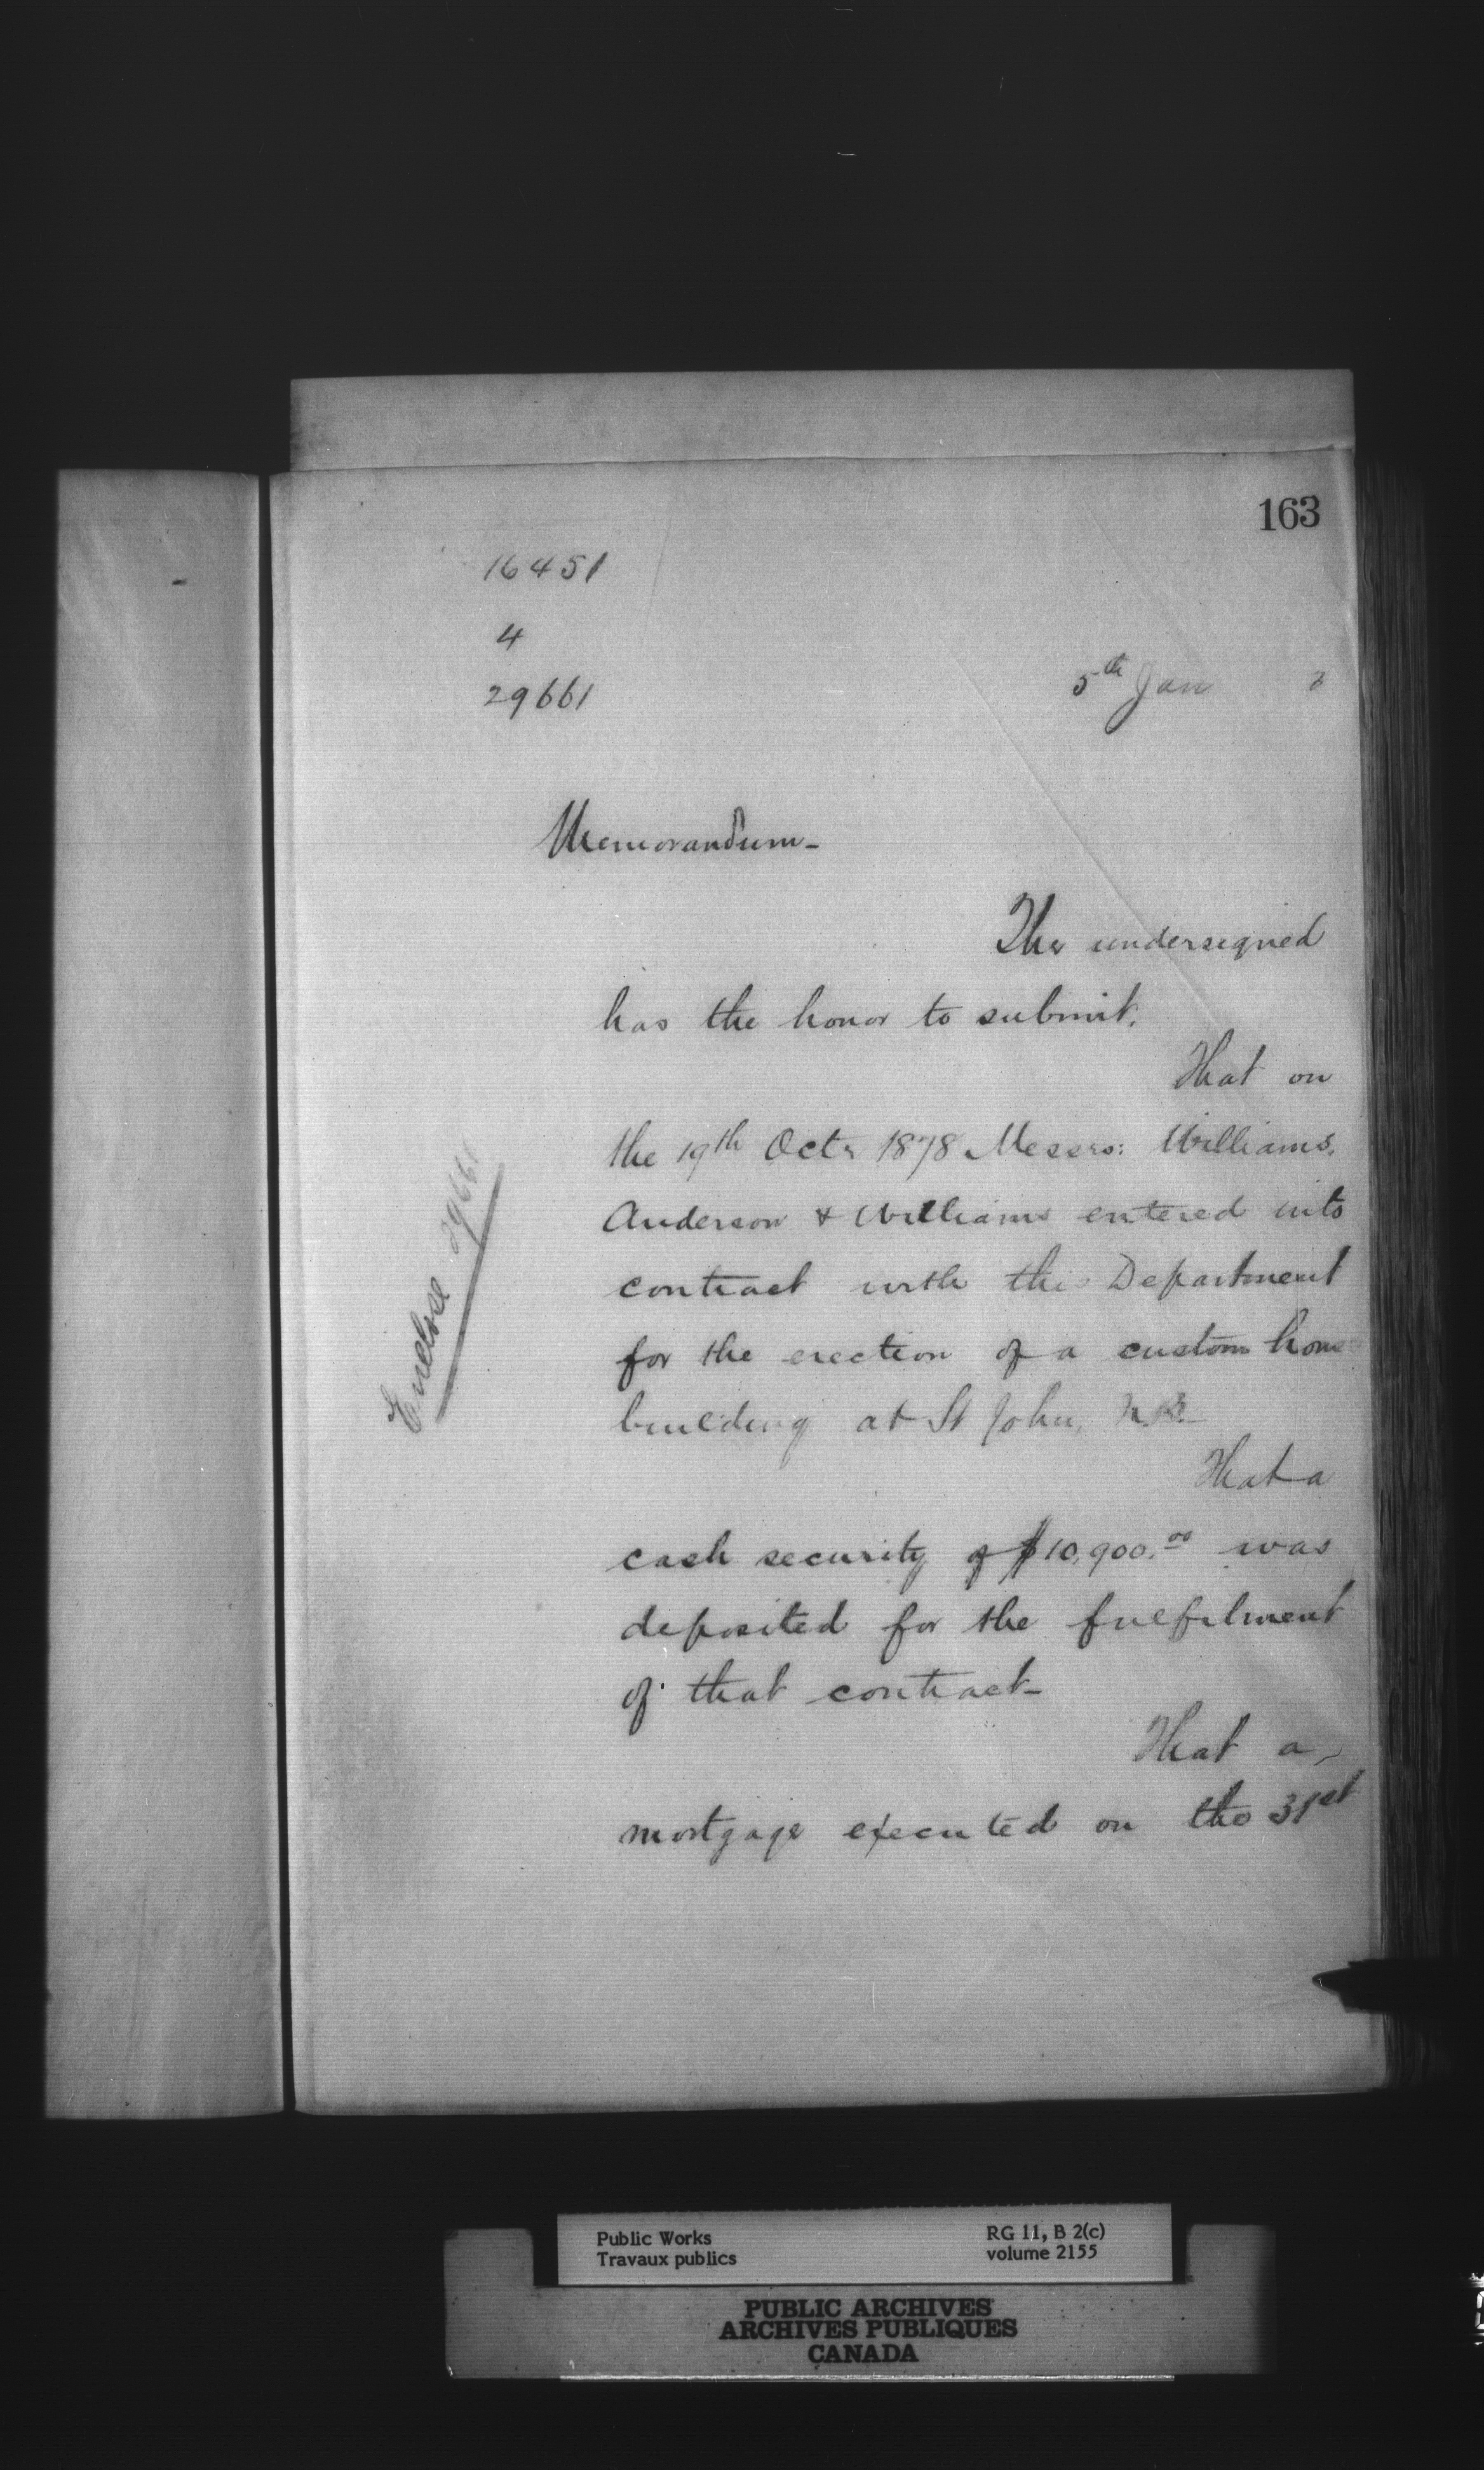 163
16451
4
29661
5th Jan 3
Memorandum_
The undersigned
has the honor to submit.
That on
the 19th Octr 1878 Messrs: Williams,
Anderson & Williams entered into
contract with this Department
for the erection of a custom house
building at St John, N.B._
That a
cash security of $10,900.00 was
deposited for the fulfilment
of that contract_
That a
mortgage executed on the 31st
Enclose 29661
Public Works
Travaux publics
RG 11, B 2(c)
volume 2155
PUBLIC ARCHIVES
ARCHIVES PUBLIQUES
CANADA